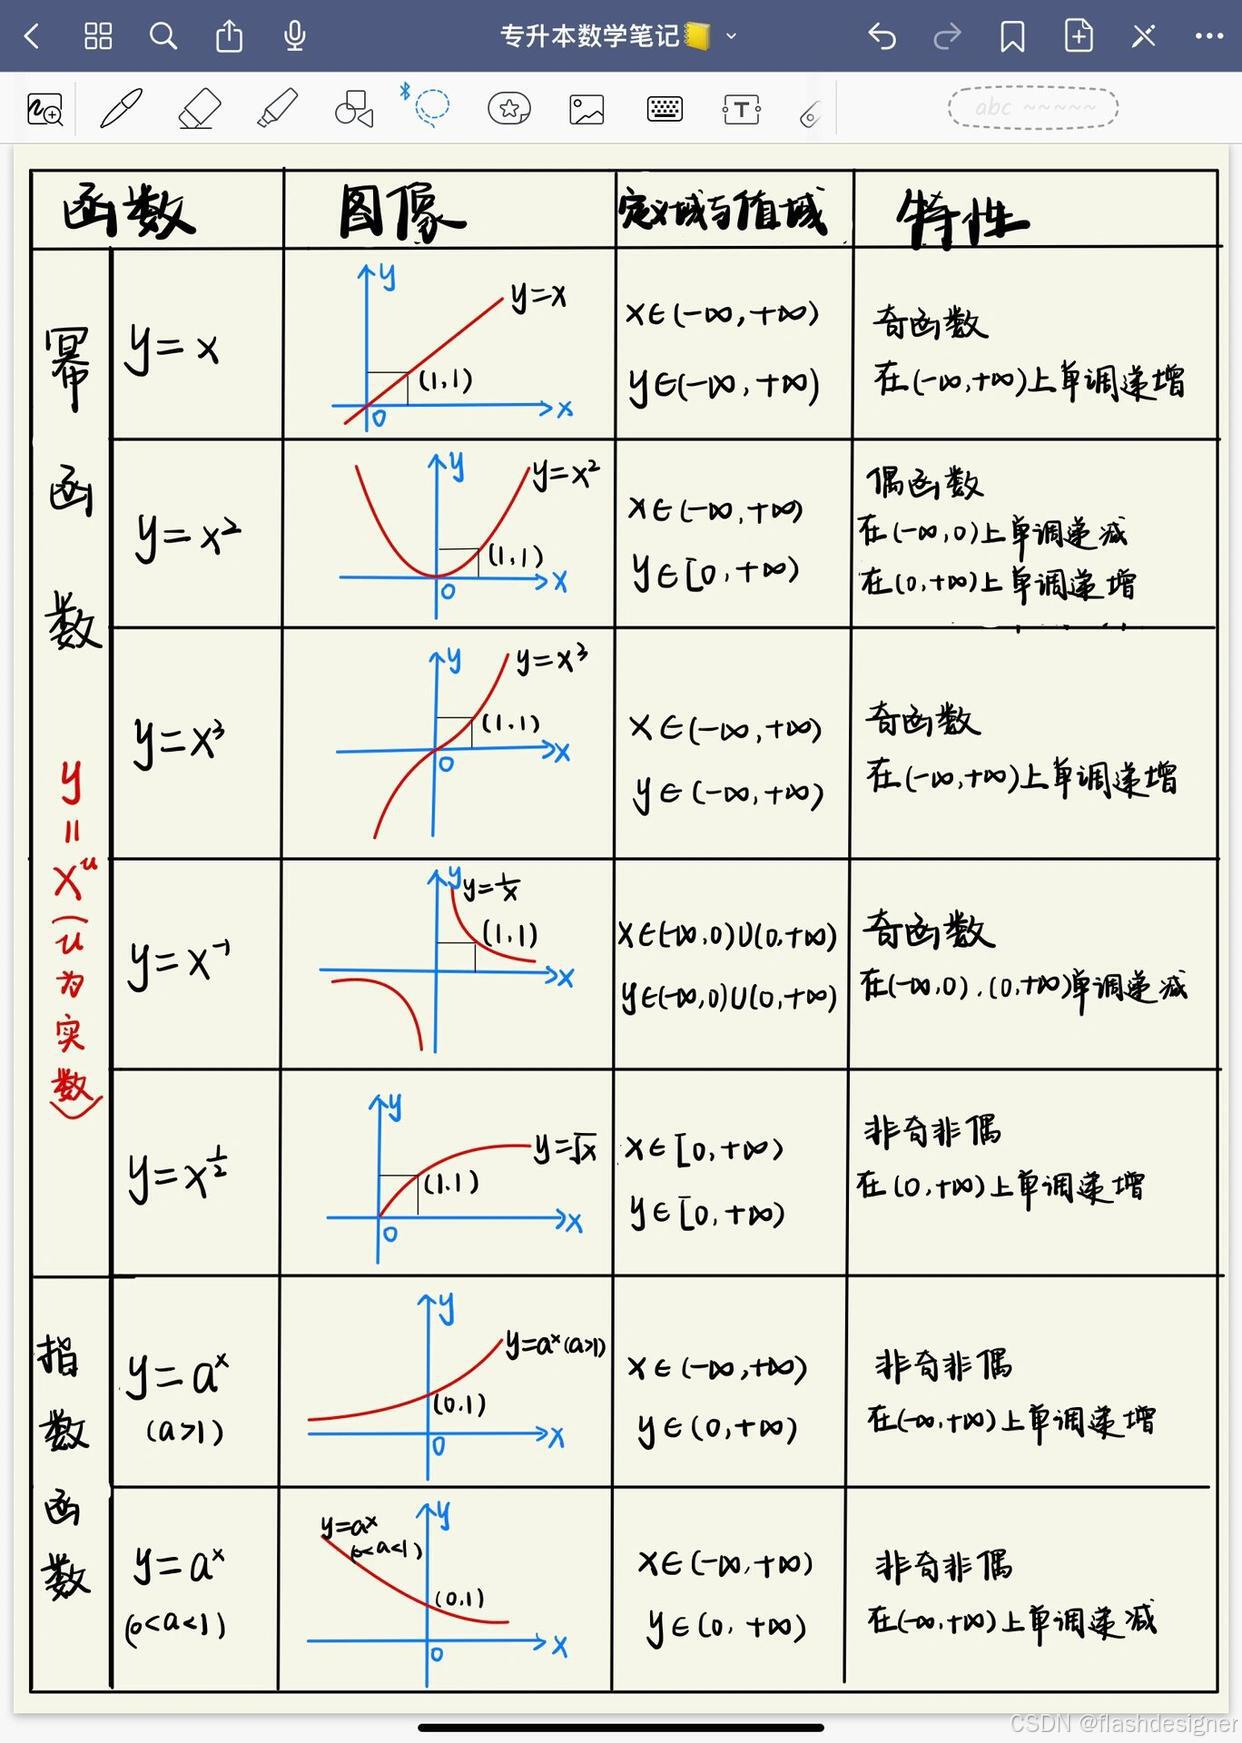 专升本数学笔记
abc
函数 图像 定义域与值域 特性
幂函数 y=xᵘ(u为实数)
y=x
y
y=x
(1,1)
0
x
x∈(-∞,+∞)
y∈(-∞,+∞)
奇函数
在(-∞,+∞)上单调递增
y=x²
y
y=x²
(1,1)
0
x
x∈(-∞,+∞)
y∈[0,+∞)
偶函数
在(-∞,0)上单调递减
在(0,+∞)上单调递增
y=x³
y
y=x³
(1,1)
0
x
x∈(-∞,+∞)
y∈(-∞,+∞)
奇函数
在(-∞,+∞)上单调递增
y=x⁻¹
y
y=1/x
(1,1)
x
x∈(-∞,0)∪(0,+∞)
y∈(-∞,0)∪(0,+∞)
奇函数
在(-∞,0).(0,+∞)单调递减
y=x^½
y
y=√x
(1.1)
0
x
x∈[0,+∞)
y∈[0,+∞)
非奇非偶
在(0,+∞)上单调递增
指数函数
y=aˣ
(a>1)
y
y=aˣ(a>1)
(0.1)
0
x
x∈(-∞,+∞)
y∈(0,+∞)
非奇非偶
在(-∞,+∞)上单调递增
y=aˣ
(0<a<1)
y
y=aˣ
(0<a<1)
(0,1)
0
x
x∈(-∞,+∞)
y∈(0,+∞)
非奇非偶
在(-∞,+∞)上单调递减
CSDN @flashdesigner